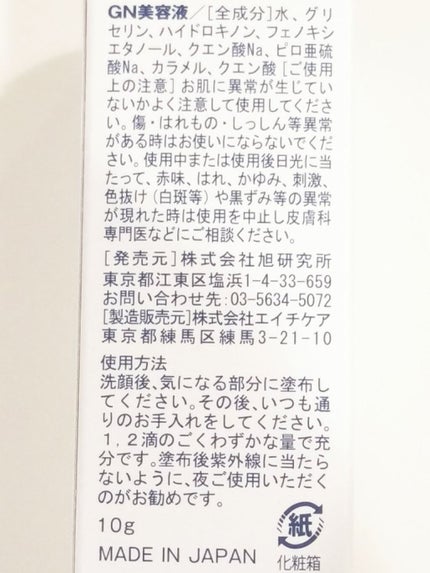 GN美容液／[全成分]水、グリ
セリン、ハイドロキノン、フェノキシ
エタノール、クエン酸Na、ピロ亜硫
酸Na、カラメル、クエン酸 [ご使用
上の注意] お肌に異常が生じてい
ないかよく注意して使用してくださ
い。傷・はれもの・しっしん等異常
がある時はお使いにならないでくだ
さい。使用中または使用後日光に当
たって、赤味、はれ、かゆみ、刺激、
色抜け（白斑等）や黒ずみ等の異常
が現れた時は使用を中止し皮膚科
専門医などにご相談ください。
[発売元]株式会社旭研究所
東京都江東区塩浜1-4-33-659
お問い合わせ先:03-5634-5072
[製造販売元]株式会社エイチケア
東京都練馬区練馬3-21-10
使用方法
洗顔後、気になる部分に塗布し
てください。その後、いつも通
りのお手入れをしてください。
1,2滴のごくわずかな量で充
分です。塗布後紫外線に当たら
ないように、夜ご使用いただく
のがお勧めです。
10g
MADE IN JAPAN
紙
化粧箱